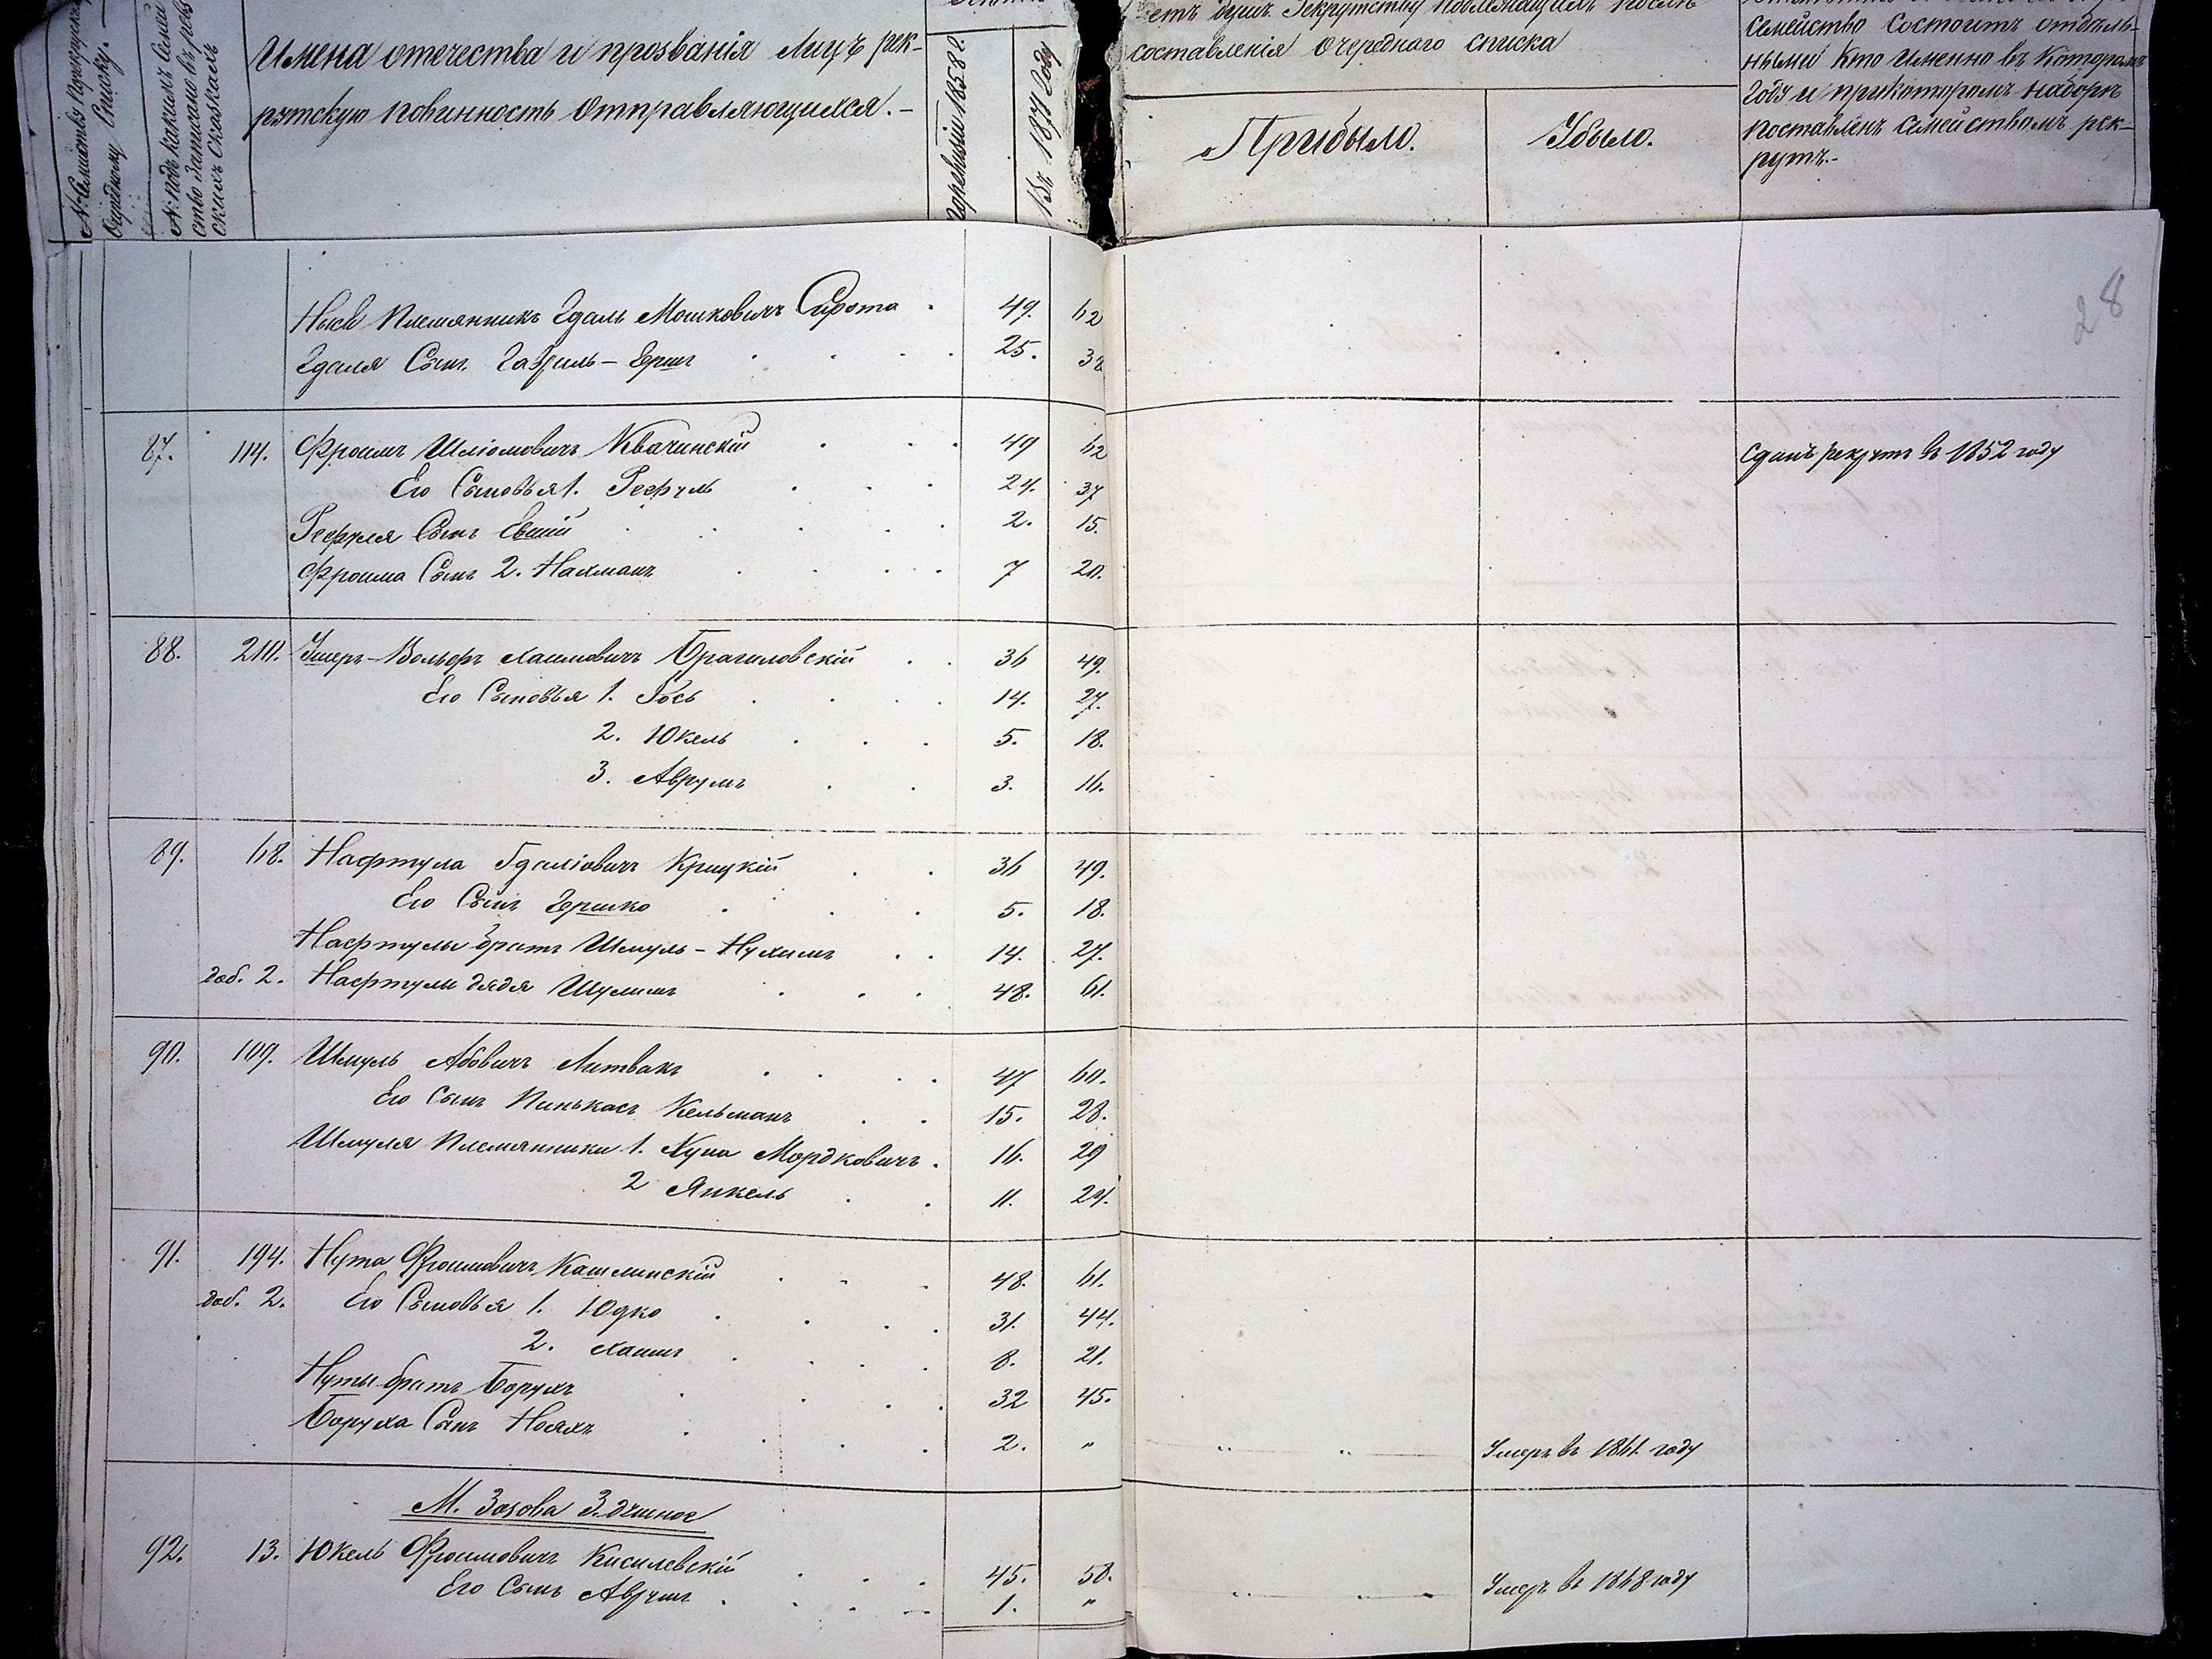 № Семейства по рекрутскому
Очередному Списку.
№ подъ какимъ Семей
ство записано въ реви
скихъ Сказкахъ
Имена отечества и прозванія Лицъ рек-
рутскую повинность Отправляющихся.-
По ревизіи 1858 г.
Въ 1871 Году
составленія Очереднаго Списка
Прибыло.
Убыло.
Семейство Состоитъ отдѣль-
нымъ Кто Именно въ Которомъ
Году и прикоторомъ наборѣ
поставленъ Семействомъ рек-
рутъ.-
28
Племянникъ Гдаль Мошковичъ Сирота 49. 62
Гдаля Сынъ Гаврiиль-Герш 25. 38
87. 114. Фроимъ Шліомовичъ Квачинскій 49 62 Сданъ рекрутъ въ 1852 году
Его Сыновья 1. Рефуль 24. 37
Рефуля Сынъ Евшій 2. 15.
Фроима Сынъ 2. Нахманъ 7 20.
88. 210. Ушеръ-Вольфъ Хаимовичъ Брагиловскій 36 49.
Его Сыновья 1. Іось 14. 27.
2. Юкель 5. 18.
3. Аврумъ 3. 16.
89. 68. Нафтула Гдаліовичъ Крицкій 36 49.
Его Сынъ Гершко 5. 18.
Нафтулы братъ Шмуль-Нухимъ 14. 27.
доб. 2. Нафтулы дядя Шулимъ 48. 61.
90. 109. Шмуль Абовичъ Литвакъ 47 60.
Его Сынъ Пинькасъ Кельманъ 15. 28.
Шмуля Племянники 1. Хуна Мордковичъ 16. 29
2 Янкель 11. 24.
91. 194. Нута Фроимовичъ Кашлинскій 48. 61.
доб. 2. Его Сыновья 1. Юдко 31. 44.
2. Хаимъ 8. 21.
Нуты братъ Борухъ 32 45.
Боруха Сынъ Нояхъ 2. " " " Умеръ въ 1861 году
М. Зозова
92. 13. Юкель Фроимовичъ Кисилевскій 45. 58.
Его Сынъ Аврумъ 1. " " " Умеръ въ 1868 году